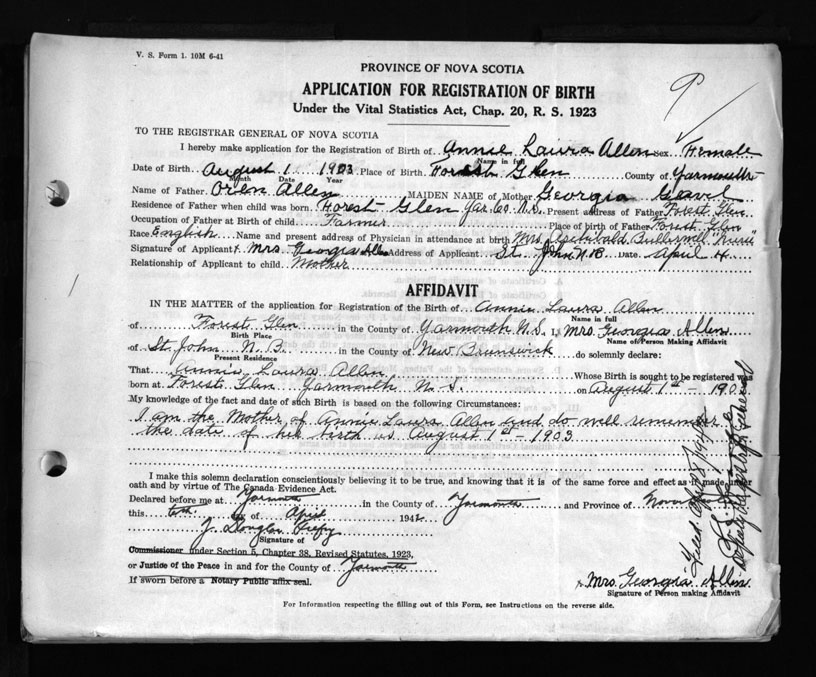 V. S. Form 1. 10M 6-41
PROVINCE OF NOVA SCOTIA
APPLICATION FOR REGISTRATION OF BIRTH
Under the Vital Statistics Act, Chap. 20, R. S. 1923
TO THE REGISTRAR GENERAL OF NOVA SCOTIA
I hereby make application for the Registration of Birth of Annie Laura Allen Sex Female
Name in full
Date of Birth August 1 1903 Place of Birth Forest Glen County of Yarmouth
Month Date Year
Name of Father Oren Allen MAIDEN NAME of Mother Georgia
Residence of Father when child was born Forest Glen Yar. Co. N.S. Present address of Father Forest Glen
Occupation of Father at Birth of child Farmer Place of birth of Father Forest Glen
Race English Name and present address of Physician in attendance at birth Mrs. Archibald "Nurse"
Signature of Applicant Mrs Georgia Allen Address of Applicant St. John N.B. Date April 4
Relationship of Applicant to child Mother
AFFIDAVIT
IN THE MATTER of the application for Registration of the Birth of Annie Laura Allen
Name in full
of Forest Glen in the County of Yarmouth N.S. I, Mrs. Georgia Allen
Birth Place Name of Person Making Affidavit
of St. John N.B. in the County of New Brunswick do solemnly declare:
Present Residence
That Annie Laura Allen Whose Birth is sought to be registered was
born at Forest Glen Yarmouth N.S. on August 1st - 190
My knowledge of the fact and date of such Birth is based on the following Circumstances:
I am the Mother of Annie Laura Allen and do well remember
the date of her birth as August 1st - 1903
I make this solemn declaration conscientiously believing it to be true, and knowing that it is of the same force and effect as if made under
oath and by virtue of The Canada Evidence Act.
Declared before me at Yarmouth in the County of Yarmouth and Province of Nova
this day of April 1942
J. Douglas
Signature of
Commissioner under Section 5, Chapter 38, Revised Statutes, 1923,
or Justice of the Peace in and for the County of Yarmouth
If sworn before a Notary Public affix seal.
Mrs. Georgia Allen
Signature of Person making Affidavit
For Information respecting the filling out of this Form, see Instructions on the reverse side.
Filed April 8/1942
Deputy Registrar General